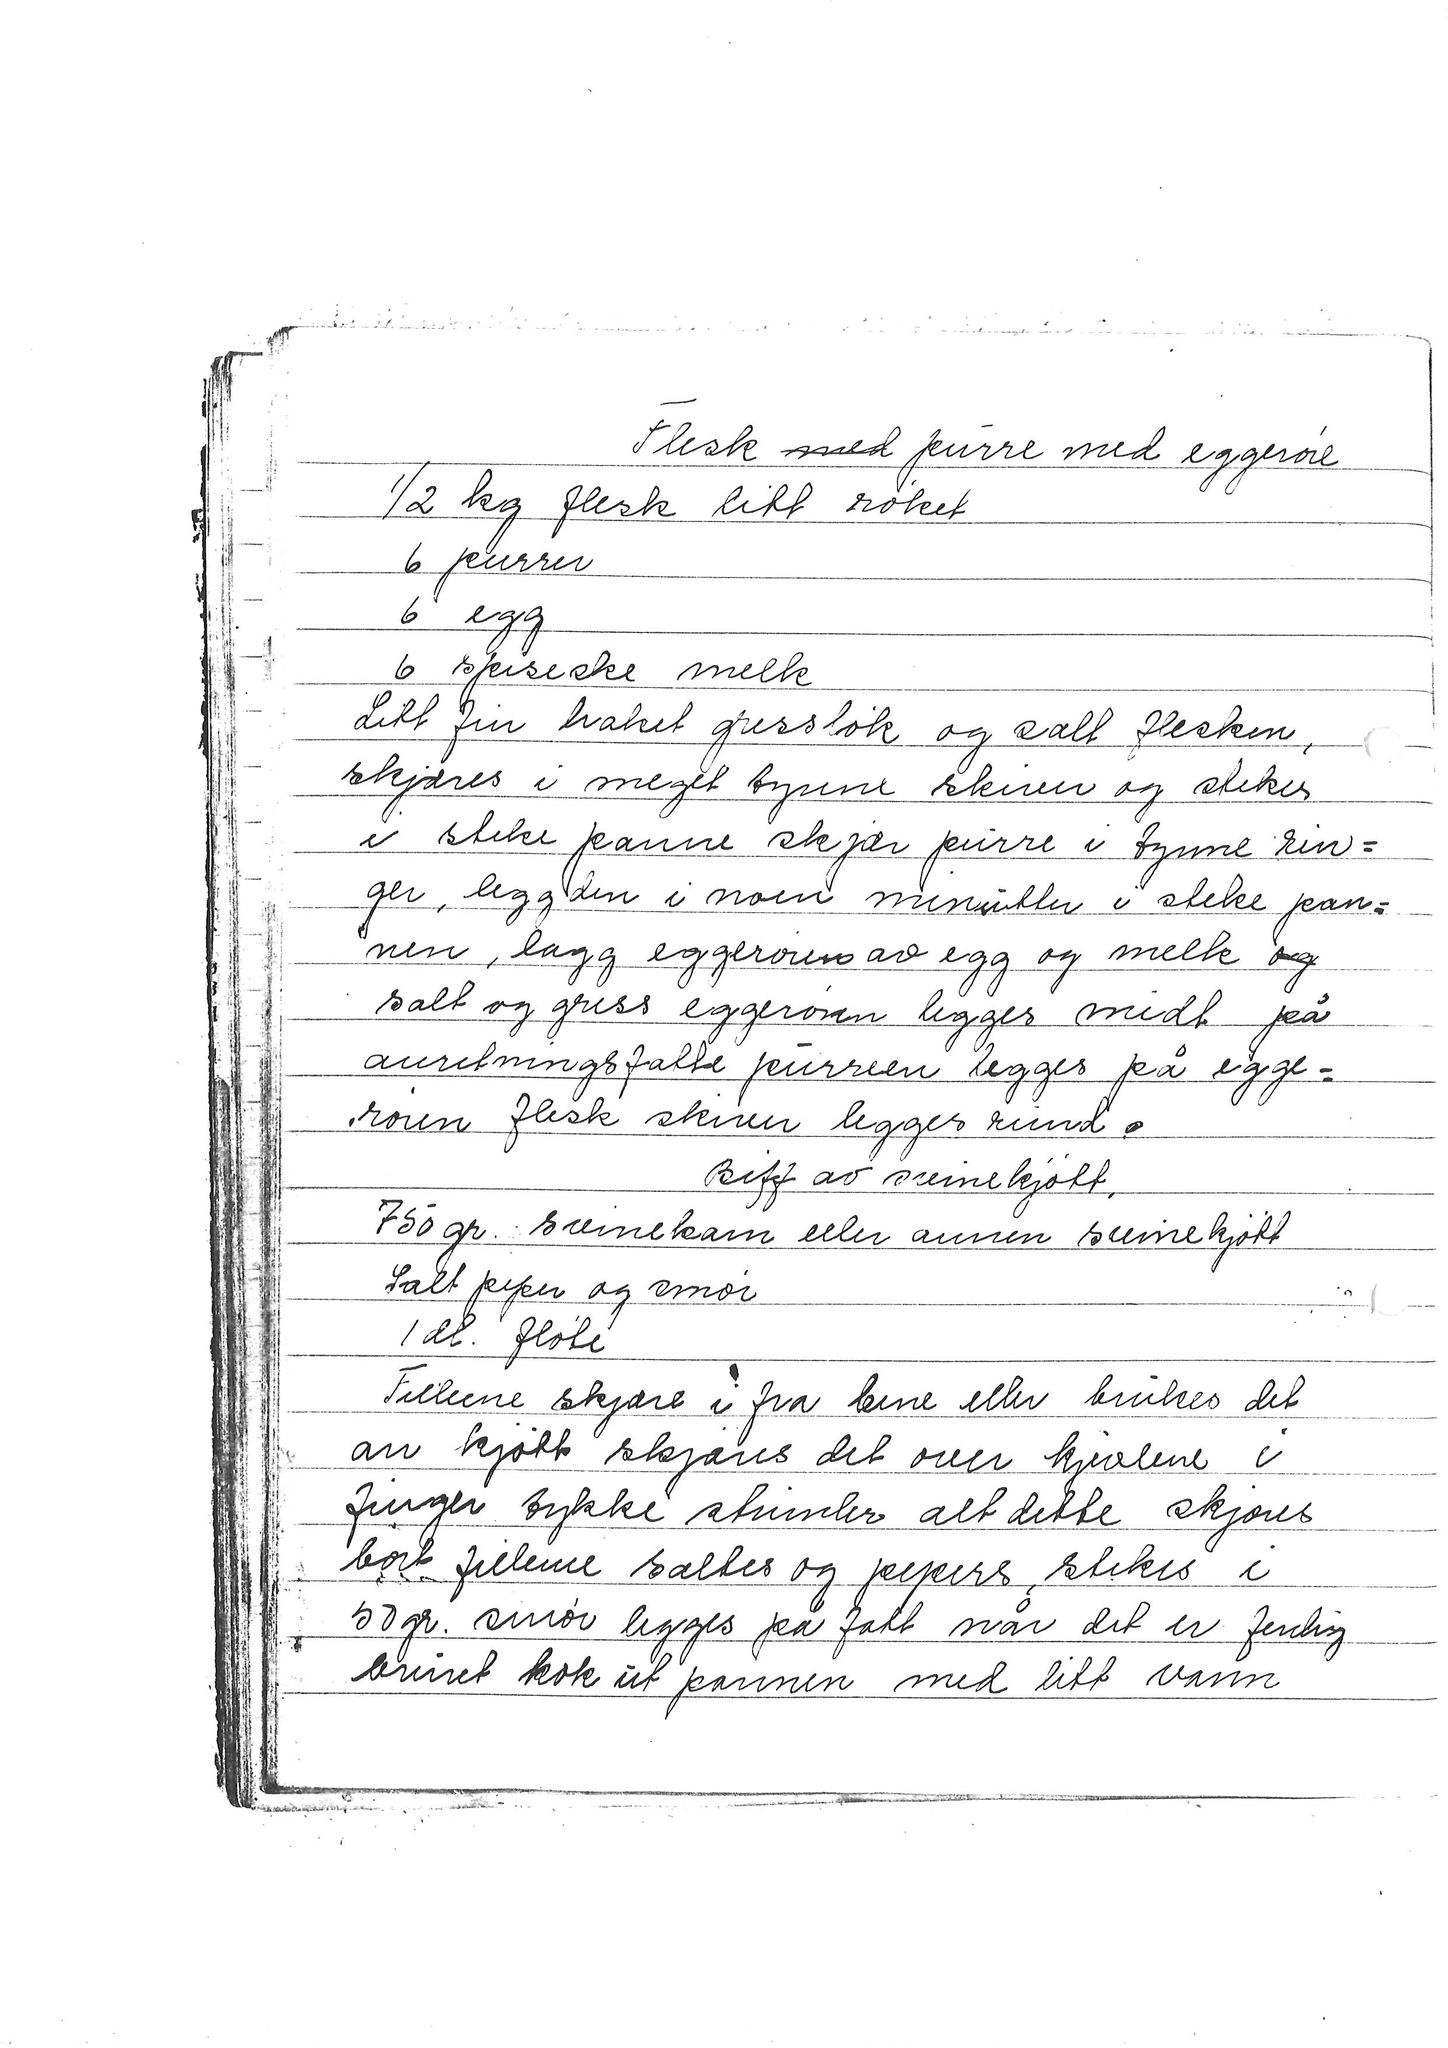 Flesk med purre med eggeröre
1/2 kg flesk litt röket
6 purrer
6 egg
6 spiseske melk
Litt fin haket gresslök og salt flesken,
skjæres i meget tynne skiver og stekes
i steke panne skjær purre i tynne rin=
ger, legg den i noen minutter i steke pan=
nen, lagg eggerören av egg og melk og
salt og gress eggerören legges midt på
anretningsfatte purreen legges på egge=
rören flesk skiver legges rund.
Biff av svinekjött.
750 gr. svinekam eller annen svinekjött
Salt peper og smör
1 dl. flöte
Fileene skjære i fra bene eller brukes det
an kjött skjæres det over kjevlene i
finger tykke strimler alt dette skjæres
bort fileene saltes og pepers, stekes i
50 gr. smör legges på fatt når det er ferdig
brunet kok ut pannen med litt vann